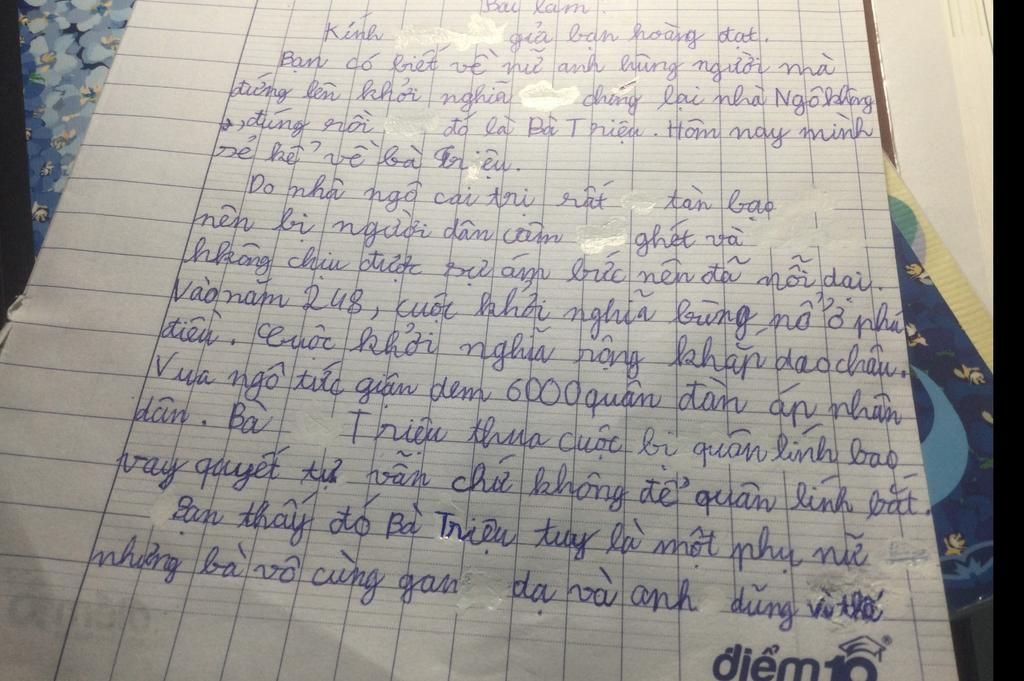 Bài làm.
Kính giả bạn hoàng đạt.
Bạn có biết về nữ anh hùng người mà
đứng lên khởi nghĩa chống lại nhà Ngô không
, đúng rồi đó là Bà Triệu. Hôm nay mình
sẻ kể về bà Triệu.
Do nhà ngô cai trị rất tàn bạo
nên bị người dân căm ghét và
không chịu được sự ám bức nên đã nỗi dai.
Vào năm 248, cuộc khởi nghĩa bùng nổ ở phú
điền. Cuộc khởi nghĩa rộng khắp dao châu.
Vua ngô tức giận đem 6000 quân đàn áp nhân
dân. Bà Triệu thua cuộc bị quân lính bao
vay quyết tự vẫn chứ không để quân lính bắt.
Bạn thấy đó Bà Triệu tuy là một phụ nữ
nhưng bà vô cùng gan dạ và anh dũng
điểm10